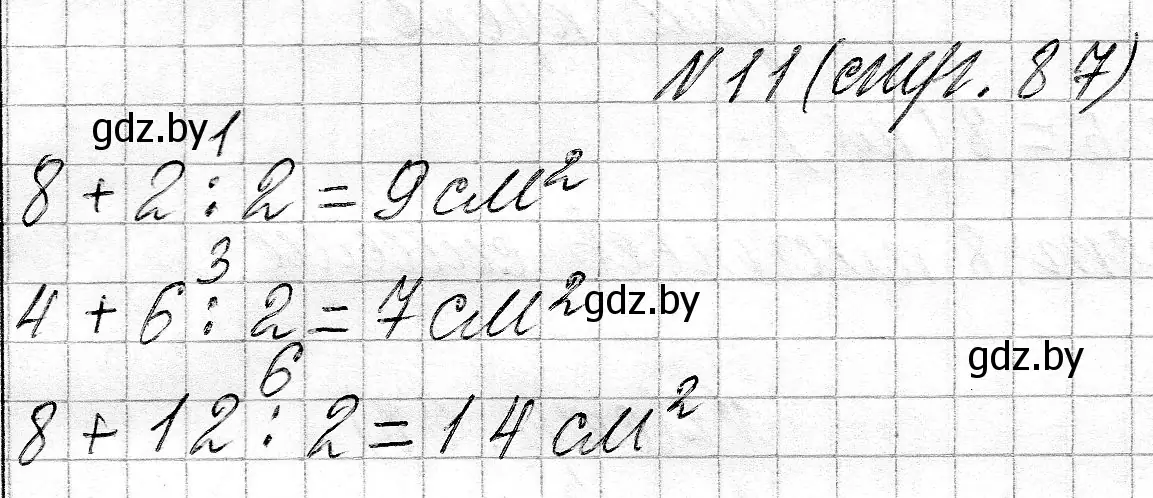 №11 (стр. 87)
gdz.by 1
8 + 2 : 2 = 9 см²
3
4 + 6 : 2 = 7 см² gdz.by
6 gdz.by
8 + 12 : 2 = 14 см²